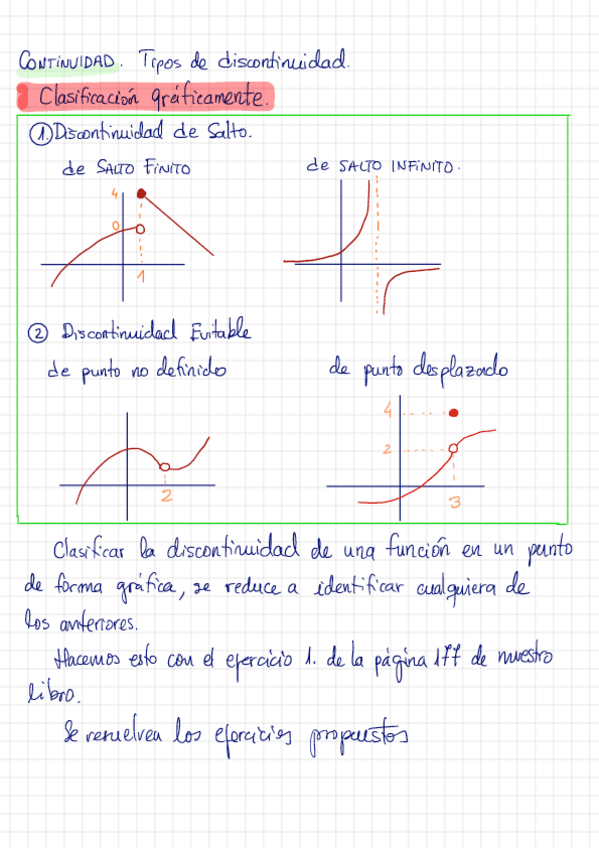 CONTINUIDAD. Tipos de discontinuidad.
Clasificación gráficamente.
① Discontinuidad de Salto.
de SALTO FINITO
de SALTO INFINITO.
4
0
1
② Discontinuidad Evitable
de punto no definido
de punto desplazado
2
4
2
3
Clasificar la discontinuidad de una función en un punto
de forma gráfica, se reduce a identificar cualquiera de
los anteriores.
Hacemos esto con el ejercicio 1. de la página 177 de nuestro
libro.
Se resuelven los ejercicios propuestos